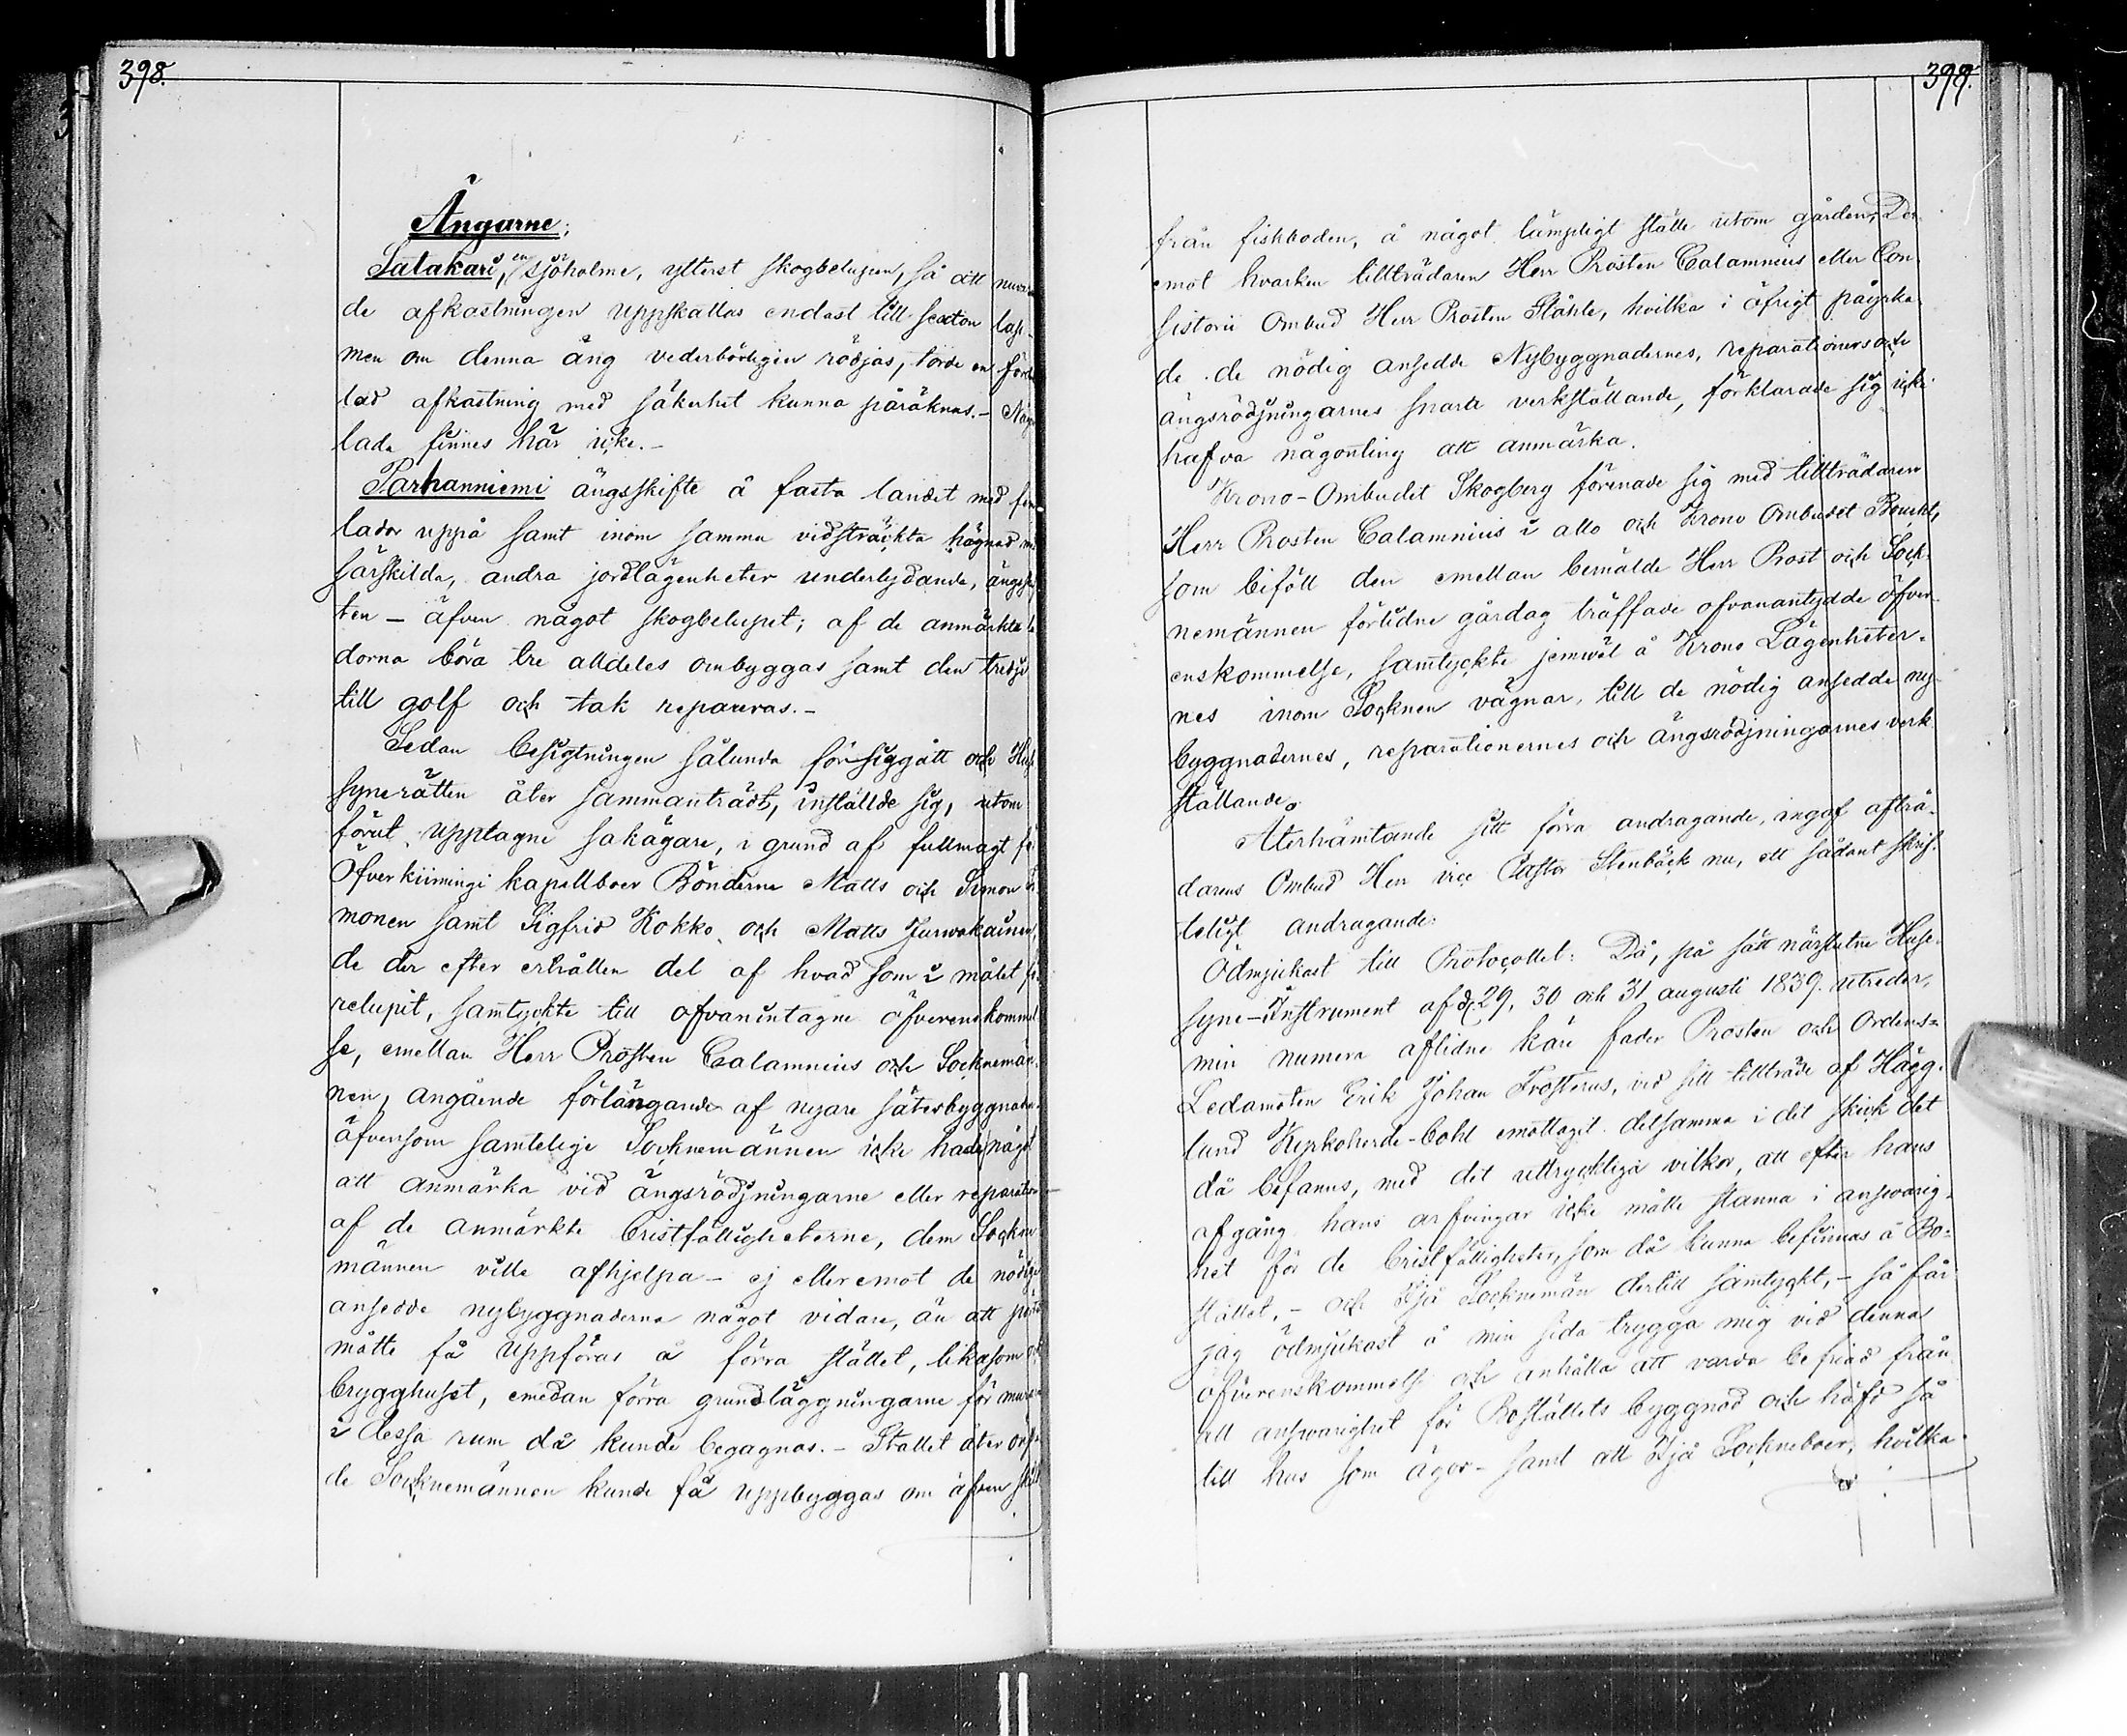 398.
Ängarne;
Satakari, en sjöholme, ytterst skogbelupen, så att nuvaran
de afkastningen uppskattas endast till sexton lass
men om denna äng vederbörligen rödjas, torde en förde
lad afkastning med säkerhet kunna påräknas. - Någ
lada finnes här icke. -
Parhanniemi ängsskifte å fasta landet med fem
lador uppå samt inom samma vidsträckta hägnad med
särskilda, andra jordlägenheter underlydande, ängsskif
ten - äfven något skogbelupit; af de anmärkta la
dorna böra tre alldeles ombyggas samt den tredje
till golf och tak repareras. -
Sedan besigtningen sålunda försiggått och Huse
synerätten åter sammanträdt, inställde sig, utom
förut upptagne sakägare, i grund af fullmagt för
Öfverkiimingi kapellboer Bönderne Matts och Simon
monen samt Sigfrid Kokko och Matts Jurwakainen,
de der efter erhållen del af hvad som i målet fö
relupit, samtyckte till ofvanintagne öfverenskommel
se, emellan Herr Prosten Calamnius och Socknemän
nen, angående förlängande af nyare sätesbyggnaden
äfvensom samtelige Socknemännen icke hade något
att anmärka vid ängsrödjningarne eller reparation
af de anmärkte bristfälligheterne, dem Sockne
männen ville afhjelpa - ej eller emot de nödige
ansedde nybyggnaderna något vidare, än att
måtte få uppföras å förra stället, likasom och
brygghuset, emedan förra grundläggningarne för murarne
i dessa rum då kunde begagnas. - Stallet åter
de Socknemännen kunde få uppbyggas om äfven
399.
från fiskboden, å något lämpligt ställe utom gården, Der
emot hvarken tillträdaren Herr Prosten Calamnius eller Con
sistorii Ombud Herr Prosten Ståhle, hvilka i öfrigt påyrka
de de nödig ansedde Nybyggnadernes, reparationers och
ängsrödjningarnes snarte verkställande, förklarade sig icke
hafva någonting att anmärka.
Krono-Ombudet Skogberg förenade sig med tillträdaren
Herr Prosten Calamnius i allo och Krono Ombudet Boucht,
som biföll den emellan bemälde Herr Prost och Sock
nemännen förlidne gårdag träffade ofvanantydde öfver
enskommelse, samtyckte jemväl å Krono Lägenheter-
nes inom Socknen vägnar, till de nödig ansedde ny
byggnadernes, reparationernes och ängsrödjningarnes verk
ställande.
Återhämtande sitt förra andragande, ingaf afträ-
darens Ombud Herr vice Pastor Stenbäck nu, ett sådant skrif-
teligt andragande:
Ödmjukast till Protocollet: Då, på sätt närslutne Huse-
syne-Instrument af d. 29, 30 och 31 augusti 1839 utreder,
min numera aflidne käre fader Prosten och Ordens-
Ledamoten Erik Johan Frosterus, vid sitt tillträde af Hägg-
lund Kyrkoherde-bohl emottagit detsamma i det skick det
då befanns, med det uttryckliga vilkor, att efter hans
afgång hans arfvingar icke måtte stanna i answarig-
het för de bristfälligheter, som då kunna befinnas å Bo-
stället, - och Ijå Socknemän dertill samtyckt, - så får
jag ödmjukast å min sida trygga mig vid denna
öfverenskommelse och anhålla att varda befriad från
all answarighet för Boställets byggnad och häfd så
till hus som ägor - samt att Ijå Sockneboer, hvilka